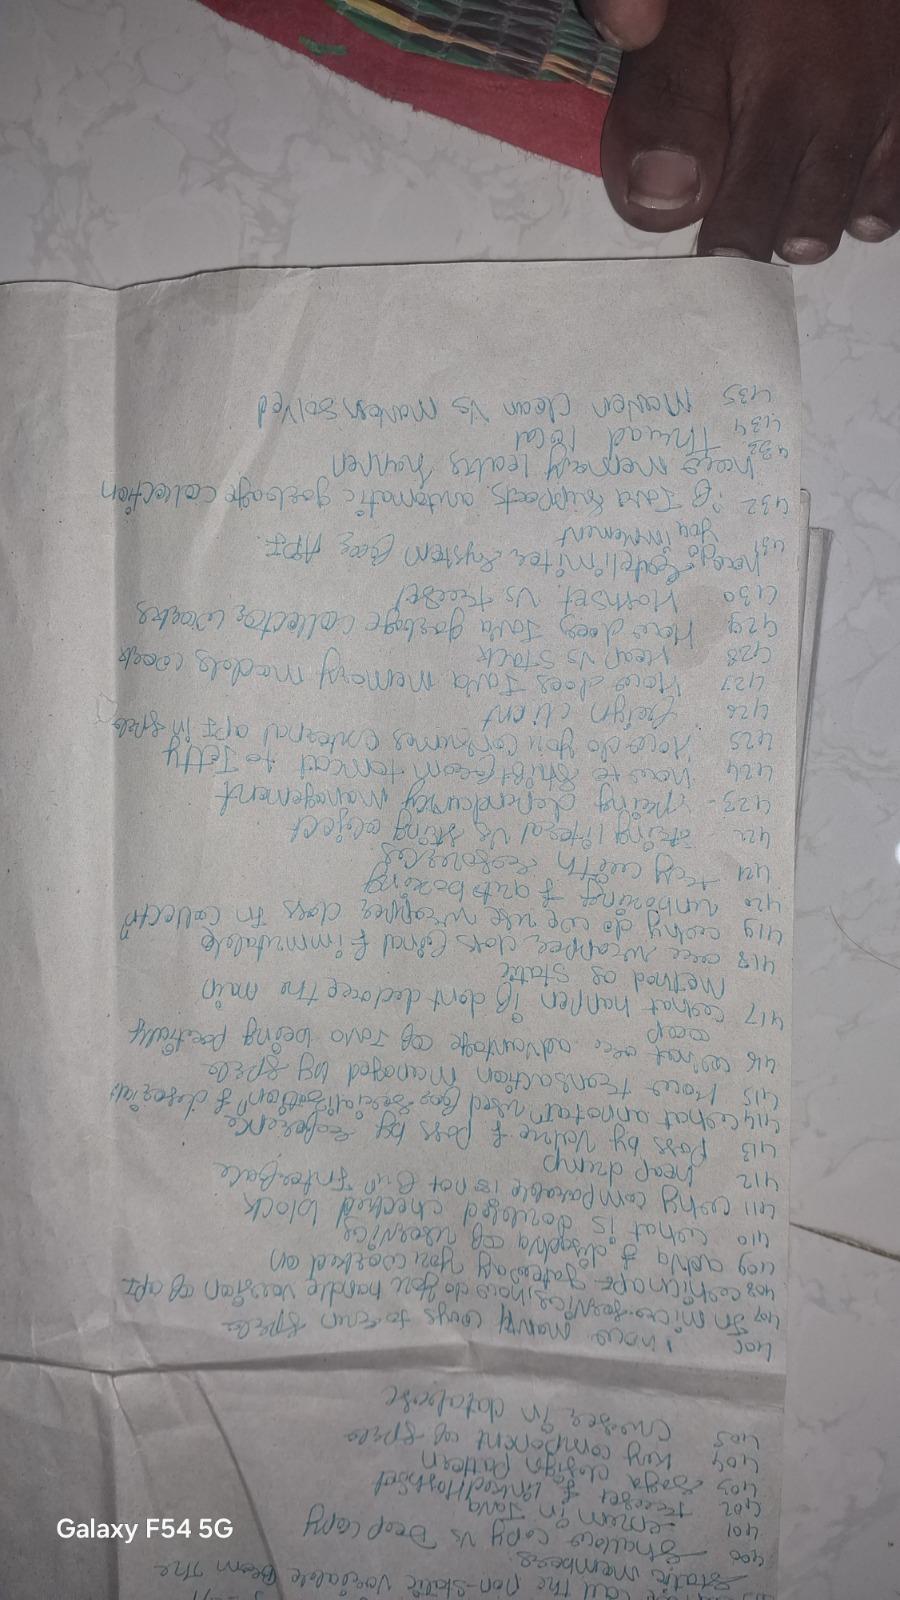 call the non-static variable from the
static members
400 shallow copy vs Deep copy
401 enum in Java
402 treeset & linkedHashset
403 saga design pattern
404 key component of
405 in database
406 how many ways to run
407 In microservices, how do you handle version of api
408 gateway you worked on
409 of
410 what is checked block
411 why comparable is not Interface
412 heap dump
413 Pass by value & pass by
414 used for serialization &
415 How transaction managed by
416 what are advantage of Java being
oop
417 what happen if dont declare the main
method as static
418 are wrapper class final & immutable
419 why do we use wrapper class in
420 unboxing & autoboxing
421 try with resources
422 string literal vs string object
423- spring management
424 how to shift from tomcat to Jetty
425 How do you external api in
426 feign client
427 How does Java memory models work
428 Heap vs stack
429 How does Java garbage collector works
430 Hashset vs treeset
431 how do system for API.
you
432 if Java automatic garbage collection
how memory leaks happen
433 Thread local
434
435 maven clean vs
Galaxy F54 5G